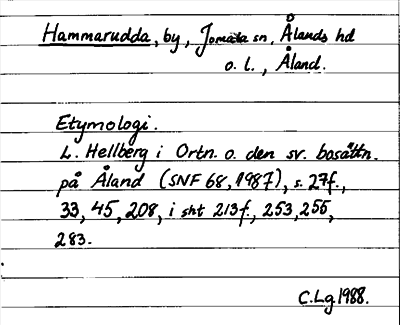 Hammarudda, by, Jomala sn, Ålands hd
o. l., Åland.
Etymologi.
L. Hellberg i Ortn. o. den sv. bosättn.
på Åland (SNF 68, 1987), s. 27f.,
33, 45, 208, i sht 213f., 253, 255,
283.
C.Lg.1988.